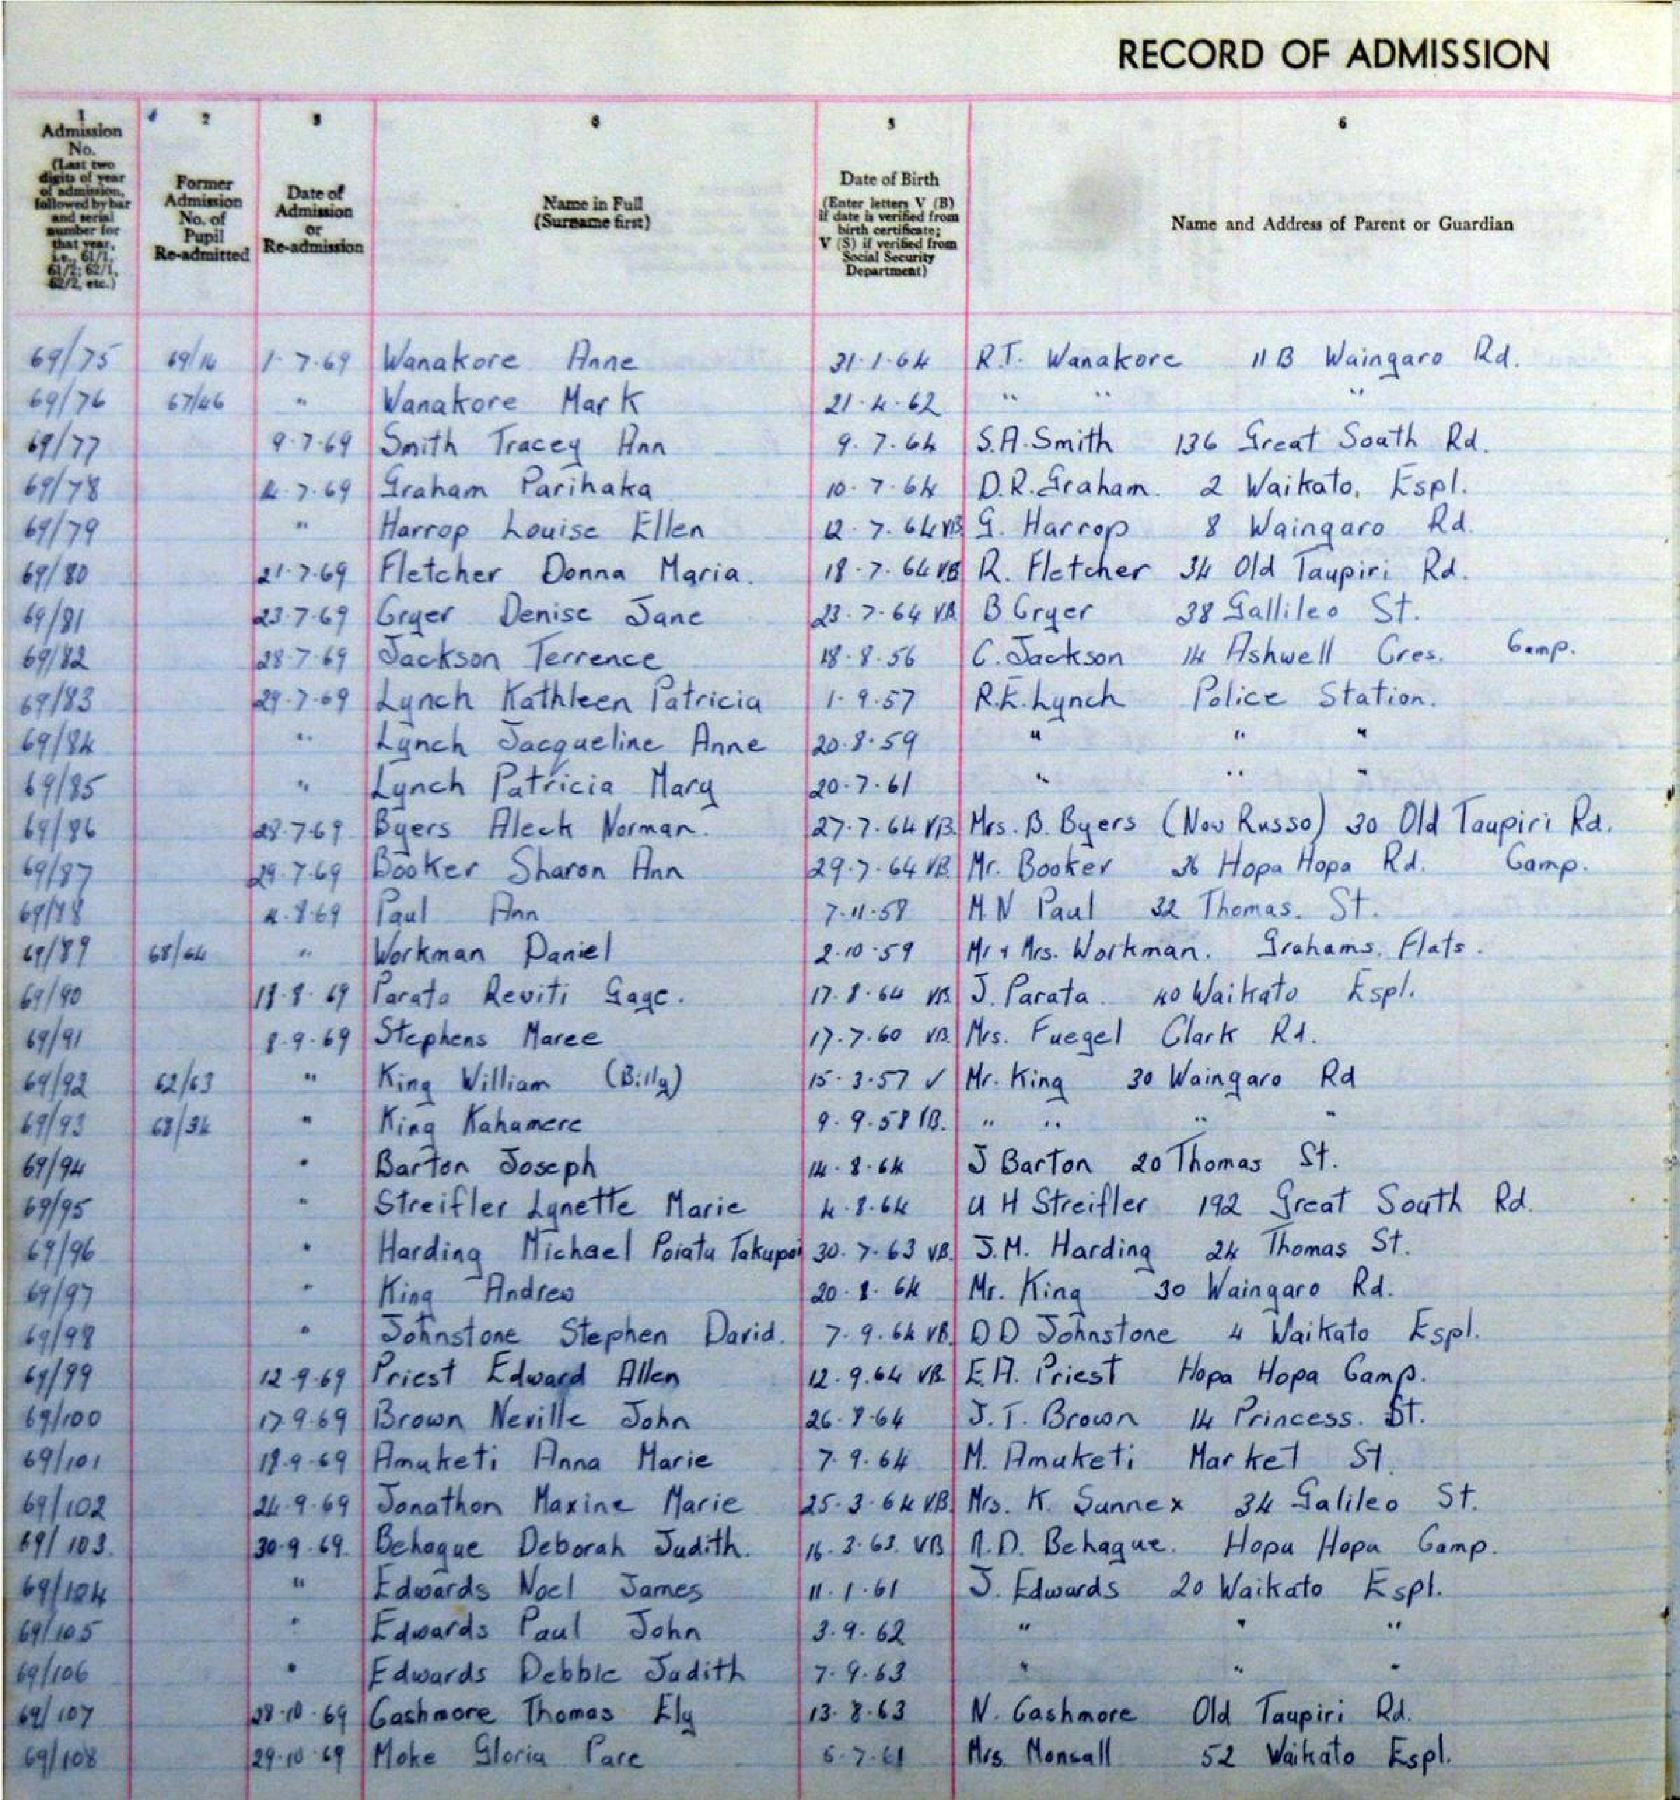 RECORD OF ADMISSION
1 2 3 4 5 6
Admission No. (Last two digits of year of admission, followed by bar and serial number for that year, i.e., 61/1, 61/2; 62/1, 62/2, etc.)
Former Admission No. of Pupil Re-admitted
Date of Admission or Re-admission
Name in Full (Surname first)
Date of Birth (Enter letters V (B) if date is verified from birth certificate; V (S) if verified from Social Security Department)
Name and Address of Parent or Guardian
69/75 69/16 1-7-69 Wanakore Anne 31-1-64 R.T. Wanakore 11B Waingaro Rd.
69/76 67/46 " Wanakore Mark 21-4-62 " " "
69/77 9-7-69 Smith Tracey Ann 9-7-64 S.A. Smith 136 Great South Rd.
69/78 7-69 Graham Parihaka 10-7-64 D.R. Graham. 2 Waikato, Espl.
69/79 " Harrop Louise Ellen 12-7-64 VB G. Harrop 8 Waingaro Rd.
69/80 21-7-69 Fletcher Donna Maria. 18-7-64 VB R. Fletcher 34 Old Taupiri Rd.
69/81 23-7-69 Cryer Denise Jane 23-7-64 VB B Cryer 38 Gallileo St.
69/82 28-7-69 Jackson Terrence 18-8-56 C. Jackson 14 Ashwell Cres. Camp.
69/83 29-7-69 Lynch Kathleen Patricia 1-9-57 R.E. Lynch Police Station.
69/84 " Lynch Jacqueline Anne 20-8-59 " " "
69/85 " Lynch Patricia Mary 20-7-61 " " "
69/86 28-7-69 Byers Aleck Norman. 27-7-64 VB. Mrs. B. Byers (Now Russo) 30 Old Taupiri Rd.
69/87 29-7-69 Booker Sharon Ann 29-7-64 VB. Mr. Booker 36 Hopa Hopa Rd. Camp.
69/88 4-8-69 Paul Ann 7-11-58 M N Paul 32 Thomas. St.
69/89 68/64 " Workman Daniel 2-10-59 Mr & Mrs. Workman. Grahams. Flats.
69/90 18-8-69 Parata Reviti Gage. 17-8-64 VB. J. Parata. 40 Waikato Espl.
69/91 8-9-69 Stephens Maree 17-7-60 VB. Mrs. Fuegel Clark Rd.
69/92 62/63 " King William (Billy) 15-3-57 V Mr. King 30 Waingaro Rd
69/93 68/34 " King Kahamere 9-9-58 VB. " " " "
69/94 " Barton Joseph 14-8-64 J Barton 20 Thomas St.
69/95 " Streifler Lynette Marie 4-8-64 U H Streifler 192 Great South Rd.
69/96 " Harding Michael Poiatu Takupoi 30-7-63 VB. J.M. Harding 24 Thomas St.
69/97 " King Andrew 20-8-64 Mr. King 30 Waingaro Rd.
69/98 " Johnstone Stephen David. 7-9-64 VB. D D Johnstone 4 Waikato Espl.
69/99 12-9-69 Priest Edward Allen 12-9-64 VB. E.A. Priest Hopa Hopa Camp.
69/100 17-9-69 Brown Neville John 26-8-64 J.T. Brown 14 Princess. St.
69/101 18-9-69 Amaketi Anna Marie 7-9-64 M. Amuketi Market St.
69/102 24-9-69 Jonathon Maxine Marie 25-3-64 VB. Mrs. K. Sunnex 34 Galileo St.
69/103. 30-9-69. Behague Deborah Judith. 16-3-63. VB A.D. Behague. Hopu Hopu Camp.
69/104 " Edwards Noel James 11-1-61 J. Edwards 20 Waikato Espl.
69/105 " Edwards Paul John 3-9-62 " " "
69/106 " Edwards Debbie Judith 7-9-63 " " "
69/107 28-10-69 Cashmore Thomas Ely 13-8-63 N. Cashmore Old Taupiri Rd.
69/108 29-10-69 Moke Gloria Pare 7-61 Mrs. Monsall 52 Waikato Espl.